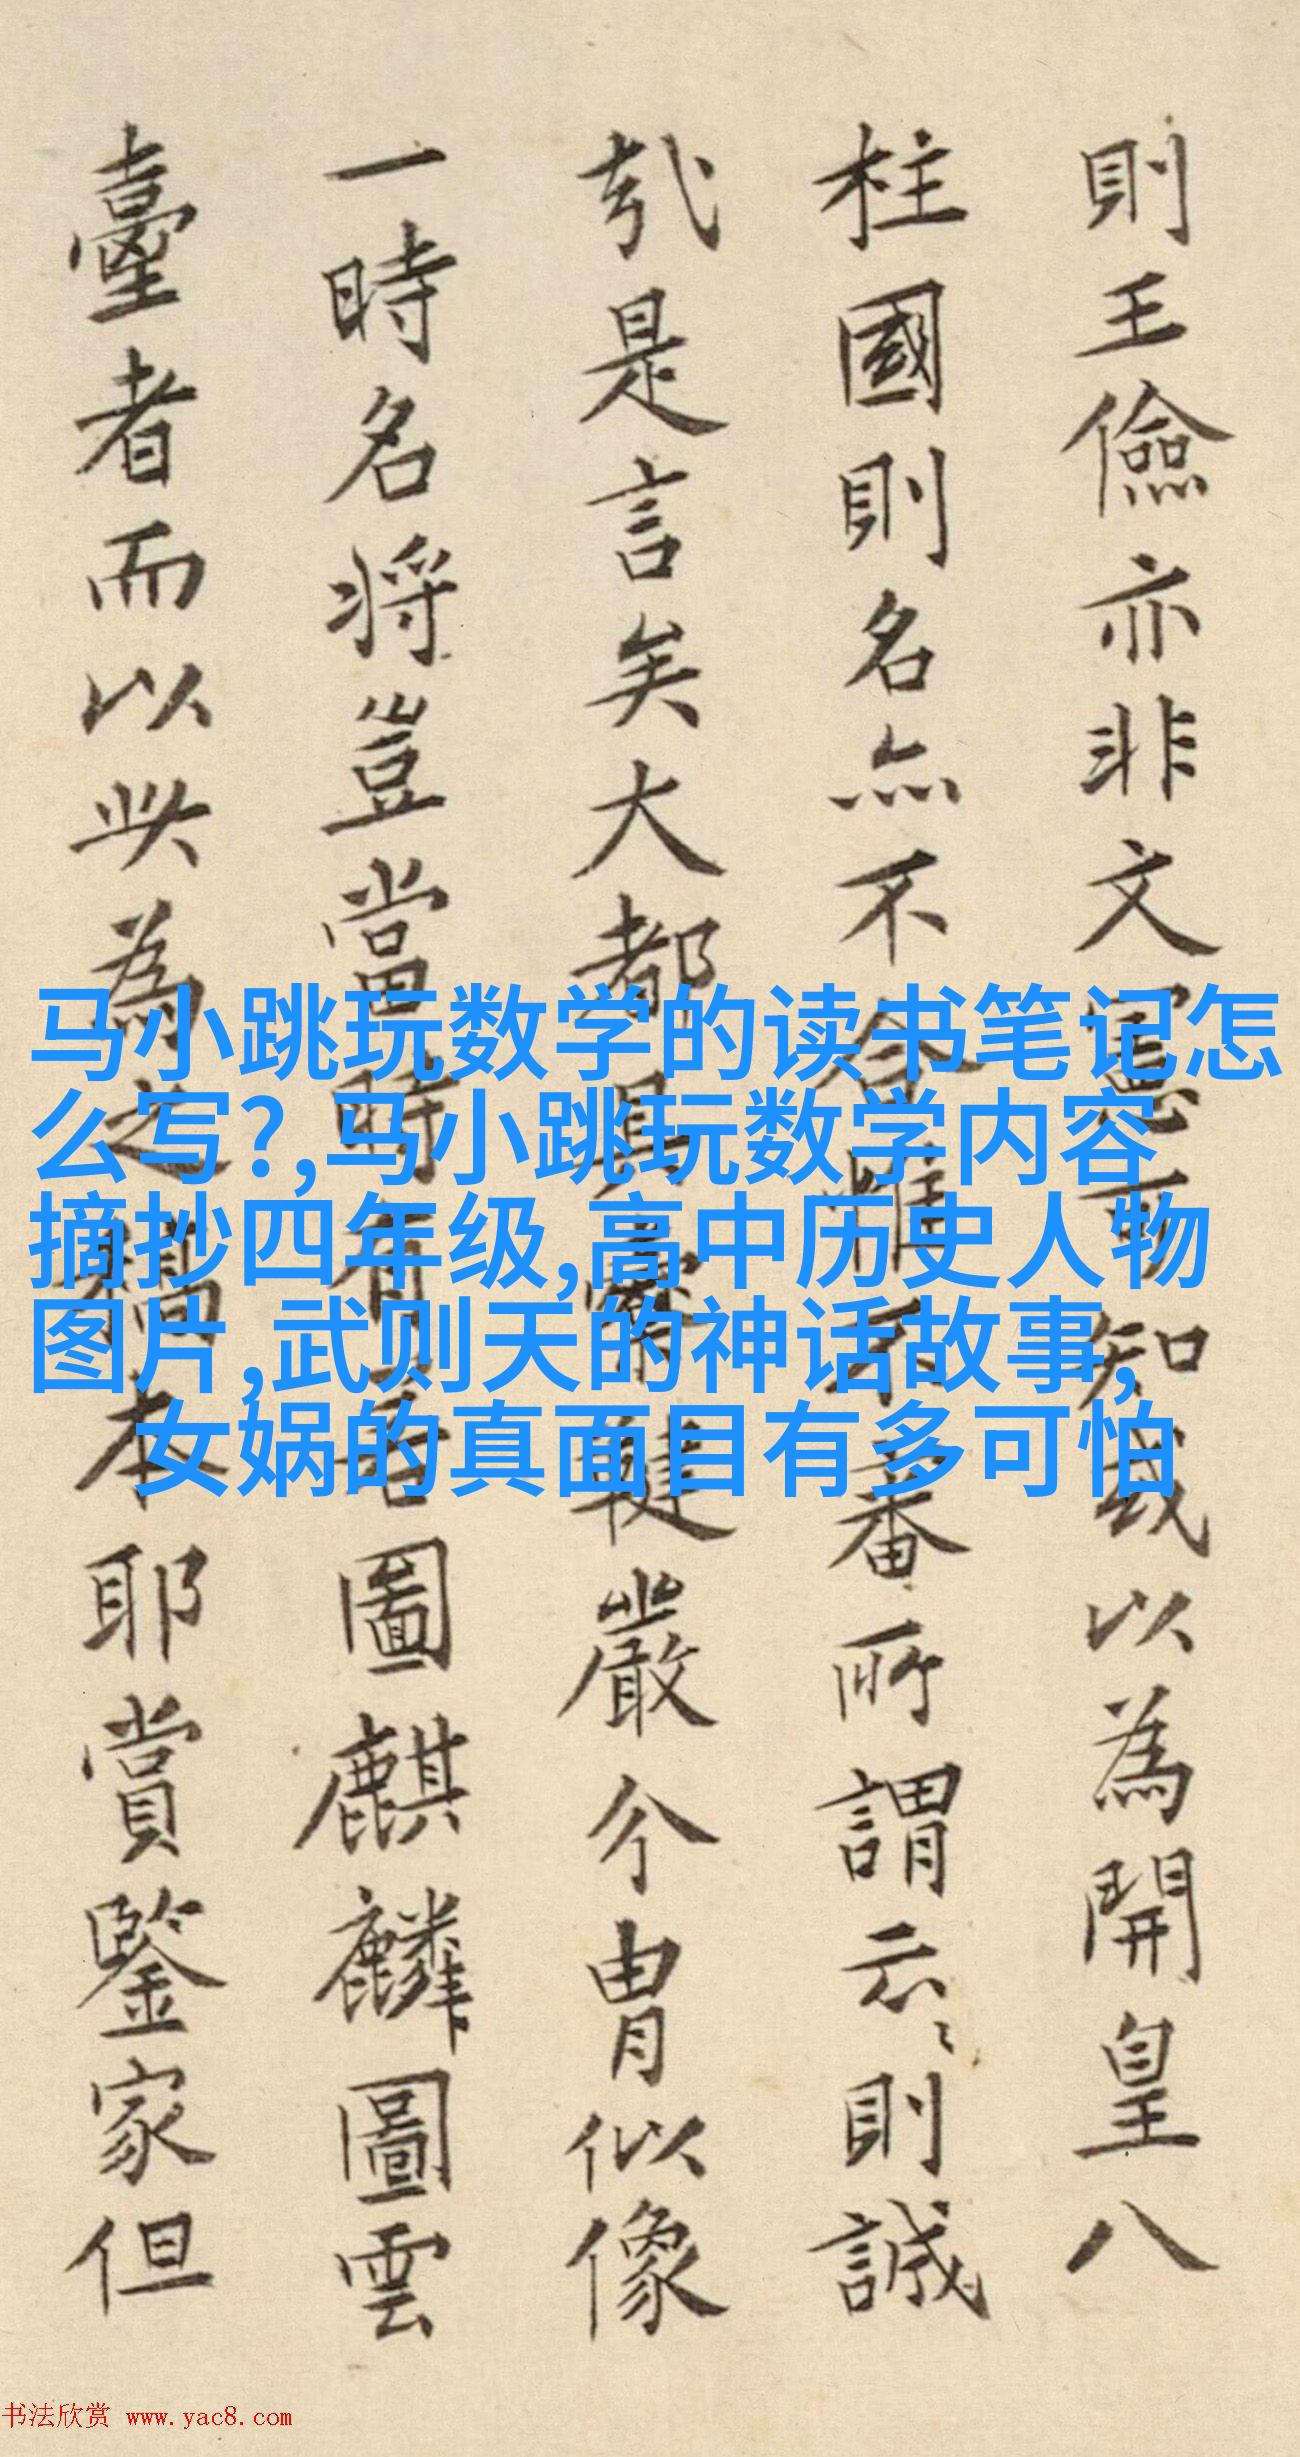 則王儉亦非文憲可知或以為開皇八
柱國則名無不審所謂云〻則誠
哉是言矣大都具嚴今胄似像
一時名将豈當時有圖麒麟圖雲
臺者而以此為之本耶賞鑒家但
马小跳玩数学的读书笔记怎
么写?,马小跳玩数学内容
摘抄四年级,高中历史人物
图片,武则天的神话故事,
女娲的真面目有多可怕
书法欣赏 www.yac8.com